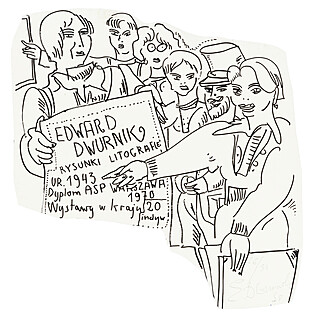 EDWARD
DWURNIK,
RYSUNKI LITOGRAFIE
UR. 1943
Dyplom ASP WARSZAWA
1970
Wystawy w kraju 20
indyw